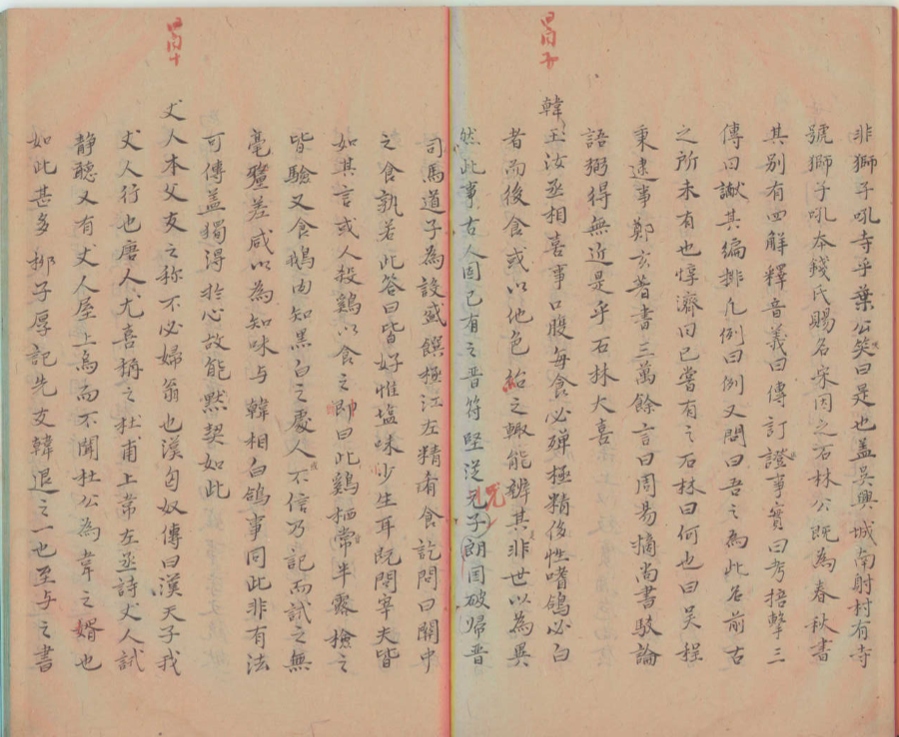 非獅子吼寺乎葉公笑曰是也蓋吳興城南射村有寺
號獅子吼本錢氏賜名宋因之石林公既為春秋書
其别有四解釋音義曰傳訂證事實曰考掊擊三
傳曰讞其編排凡例曰例又問曰吾之為此名前古
之所未有也惇濟曰已嘗有之石林曰何也曰吴程
秉逮事鄭玄著書三萬餘言曰周易摘尚書駁論
語弼得無近是乎石林大喜
韓玉汝丞相喜事口腹每食必殫極精後性嗜鴿必白
者而後食或以他色紿之輙能辨其非世以為異
然此事古人固已有之晋符堅從兄子朗國破歸晋
司馬道子為設盛饌極江左精肴食訖問曰關中
之食孰若此答曰皆好惟塩味少生耳既問宰夫皆
如其言或人殺鷄以食之即曰此鷄栖常半露檢之
皆驗又食鵝肉知黑白之處人不信乃記而試之無
毫釐差咸以為知味与韓相白鴿事同此非有法
可傳盖獨得於心故能默契如此
丈人本父友之称不必婦翁也漢匈奴傳曰漢天子我
丈人行也唐人尤喜稱之杜甫上韋左丞詩丈人試
靜聽又有丈人屋上烏而不聞杜公為韋之婿也
如此甚多栁子厚記先友韓退之一也至与之書